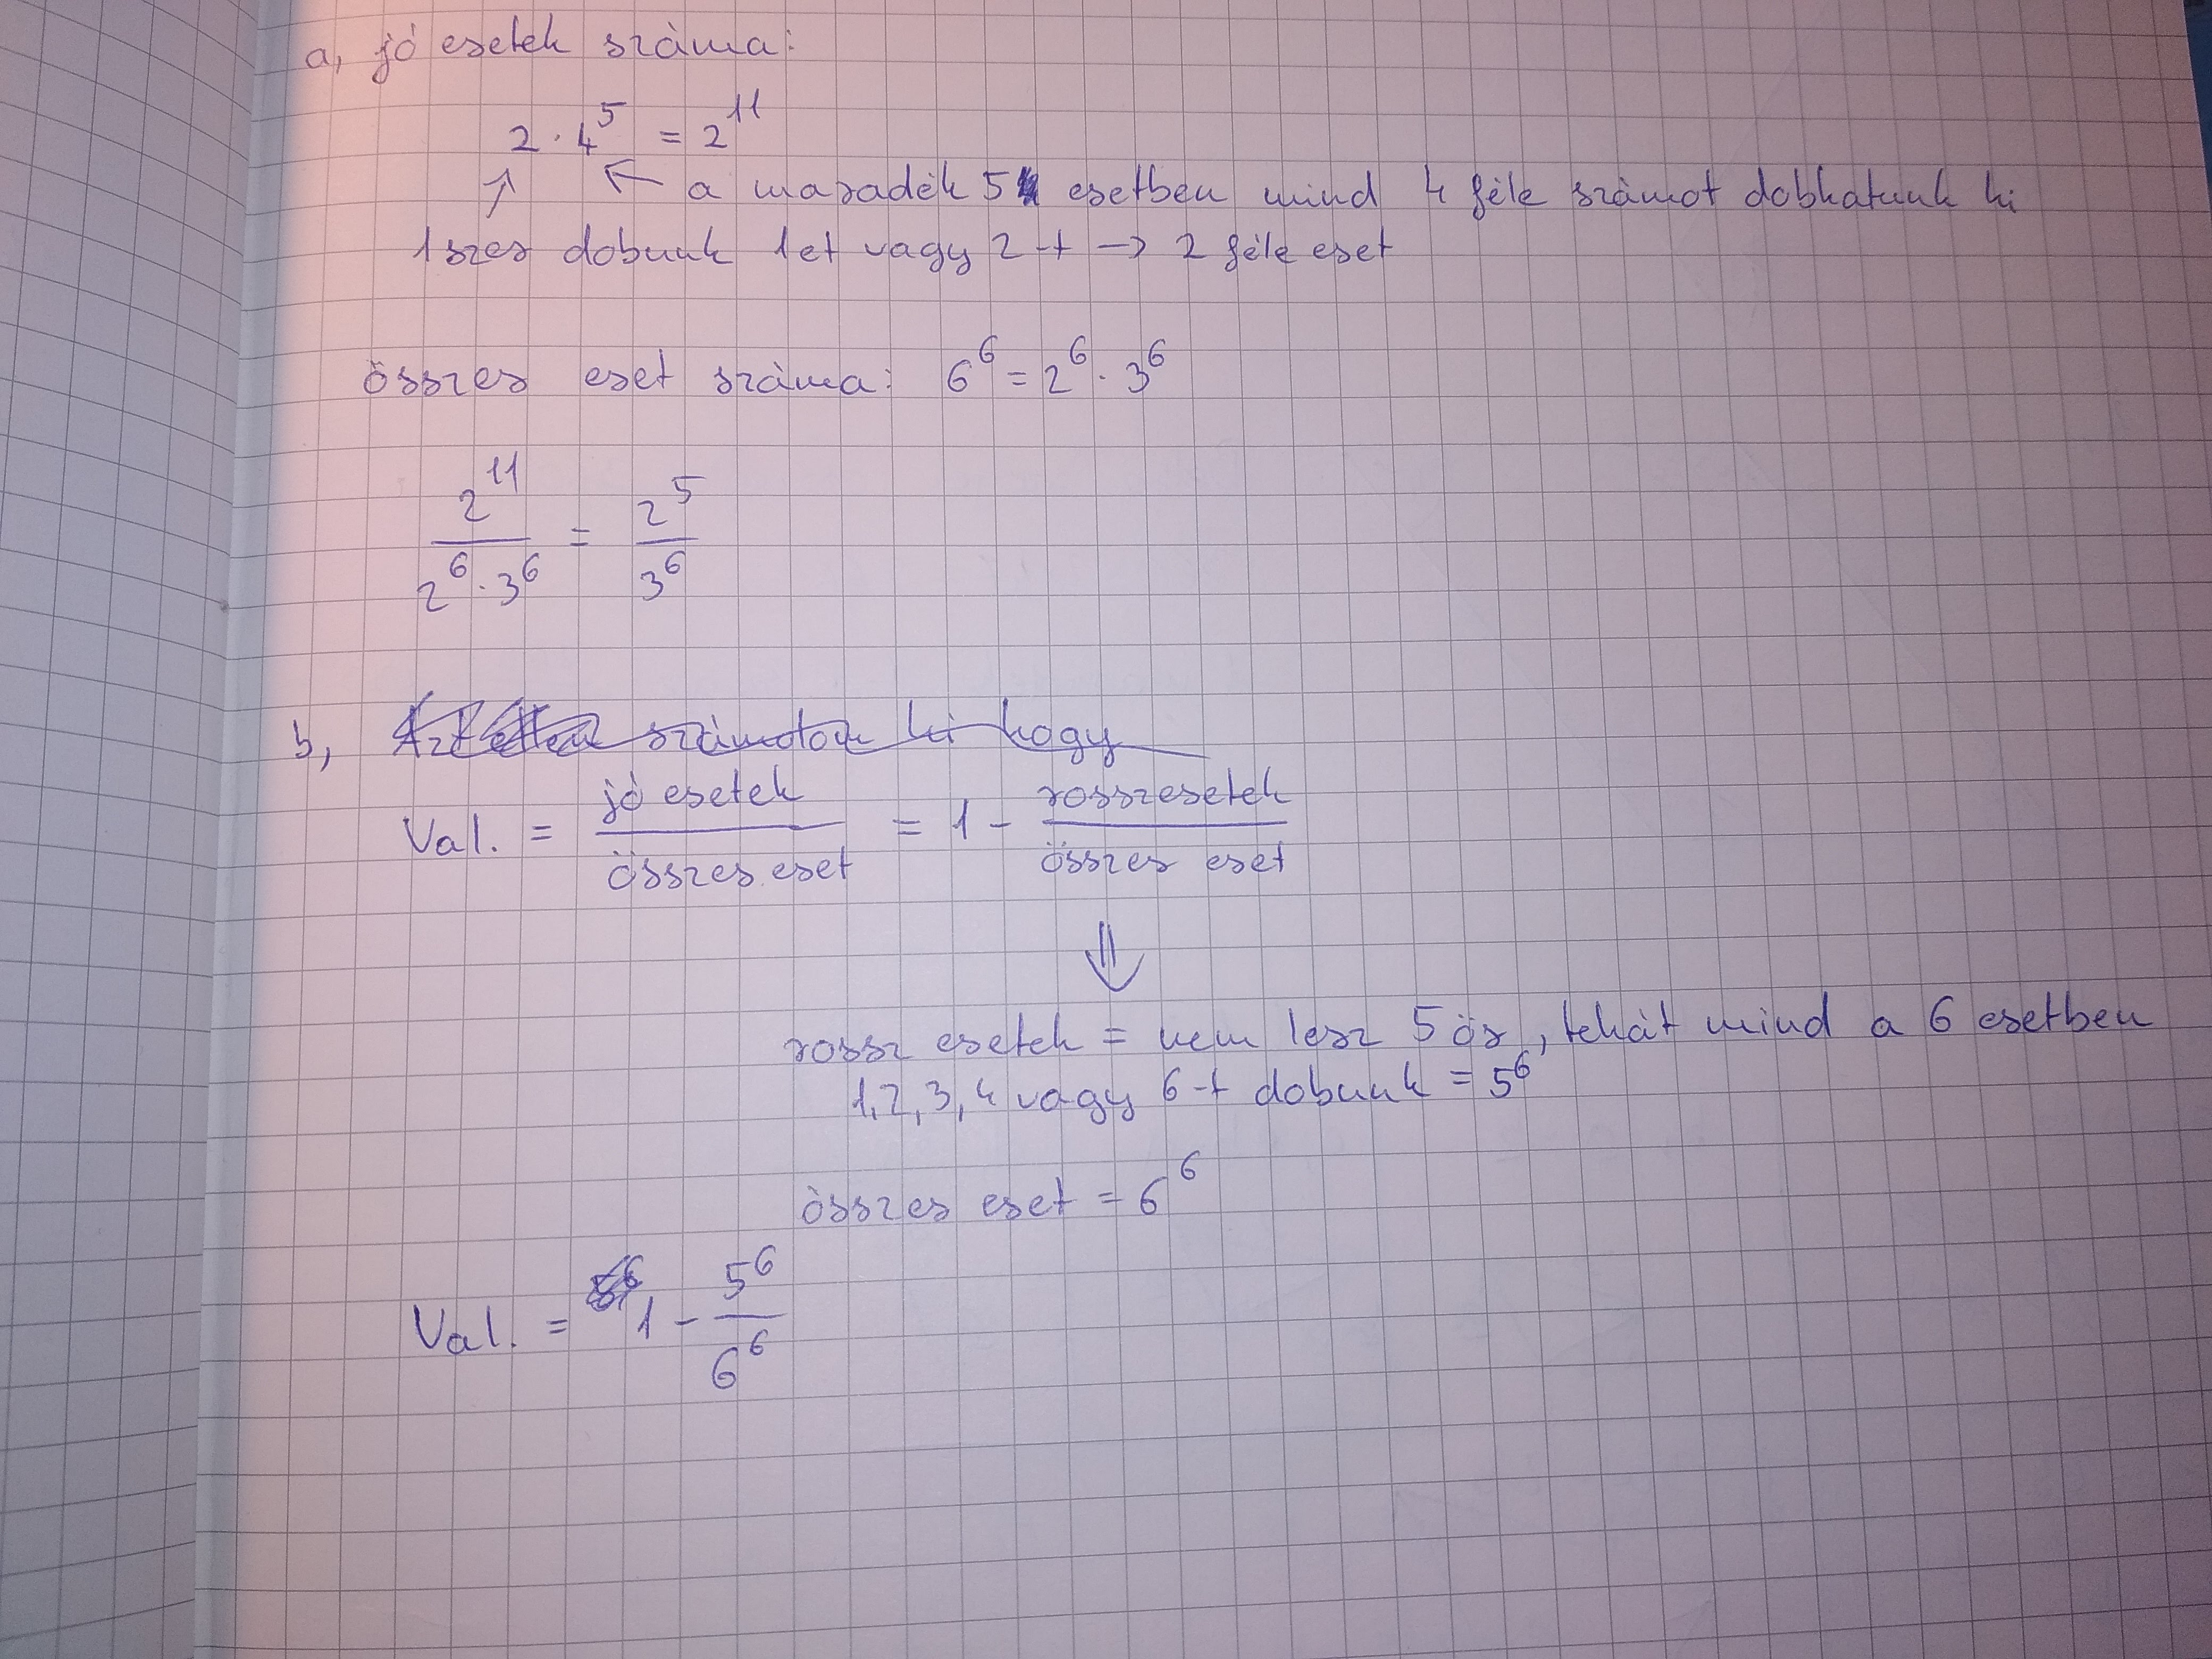 a, jó esetek száma:
2 · 4^5 = 2^11
↑ ← a maradék 5 esetben mind 4 féle számot dobhatunk ki
1szer dobunk 1et vagy 2-t → 2 féle eset
összes eset száma: 6^6 = 2^6 · 3^6
2^11 / 2^6 · 3^6 = 2^5 / 3^6
b, számolom ki hogy
Val. = jó esetek / összes eset = 1 - rosszesetek / összes eset
⇓
rossz esetek = nem lesz 5ös, tehát mind a 6 esetben
1,2,3,4 vagy 6-t dobunk = 5^6
összes eset = 6^6
Val. = 1 - 5^6 / 6^6